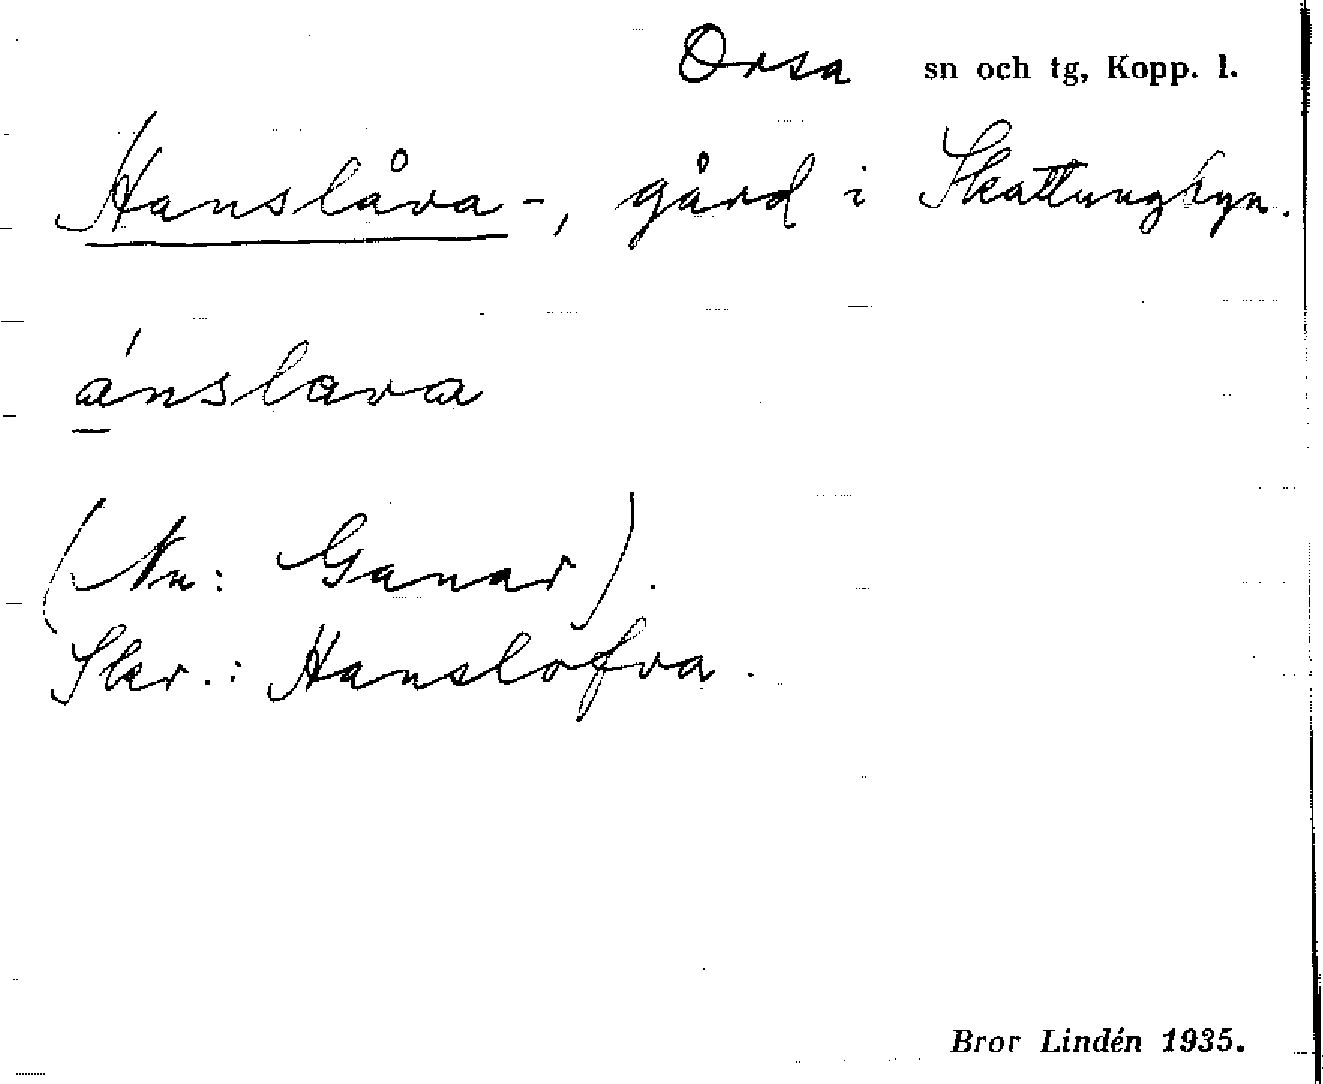 Orsa sn och tg, Kopp. l.
Hanslåva-, gård i Skattungbyn.
ánslava
(Nu: Ganar).
Skr.: Hanslöfva.
Bror Lindén 1935.